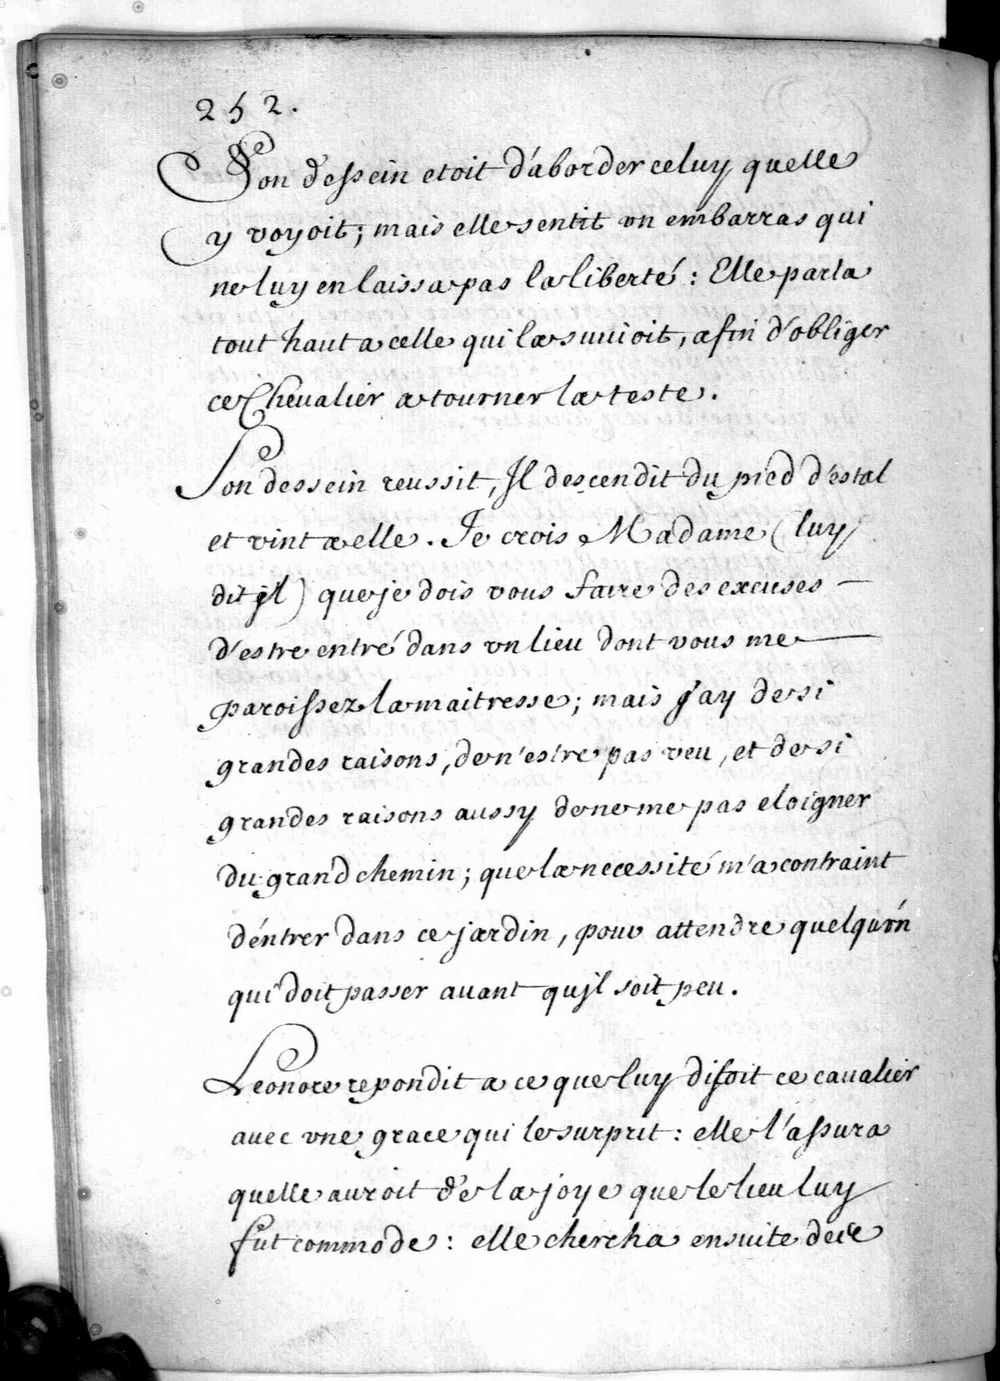 252.
Son dessein etoit d'aborder celuy quelle
y voyoit; mais elle sentit vn embarras qui
ne luy en laissa pas la liberté: Elle parla
tout haut a celle qui la suiuoit, afin d'obliger
ce Cheualier a tourner la teste.
Son dessein reussit, Jl descendit du pied d'estal
et vint a elle. Je crois Madame (luy
dit jl) que je dois vous faire des excuses
d'estre entré dans vn lieu dont vous me
paroissez la maitresse; mais j'ay de si
grandes raisons, de n'estre pas veu, et de si
grandes raisons aussy de ne me pas eloigner
du grand chemin; que la necessité m'a contraint
d'entrer dans ce jardin, pour attendre quelqu'vn
qui doit passer auant qujl soit peu.
Leonore repondit a ce que luy disoit ce caualier
auec vne grace qui le surprit: elle l'assura
quelle auroit de la joye que le lieu luy
fut commode: elle chercha ensuite de ce